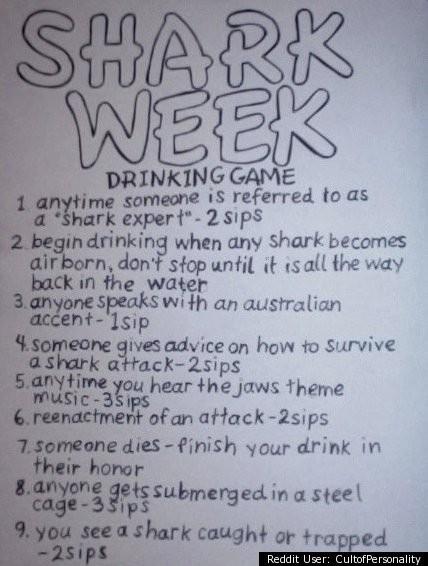 SHARK
WEEK
DRINKING GAME
1 anytime someone is referred to as
a "shark expert" - 2 sips
2. begin drinking when any shark becomes
airborn, don't stop until it is all the way
back in the water
3. anyone speaks with an australian
accent - 1 sip
4. someone gives advice on how to survive
a shark attack - 2 sips
5. anytime you hear the jaws theme
music - 3 sips
6. reenactment of an attack - 2 sips
7. someone dies - finish your drink in
their honor
8. anyone gets submerged in a steel
cage - 3 sips
9. you see a shark caught or trapped
- 2 sips
Reddit User: CultofPersonality